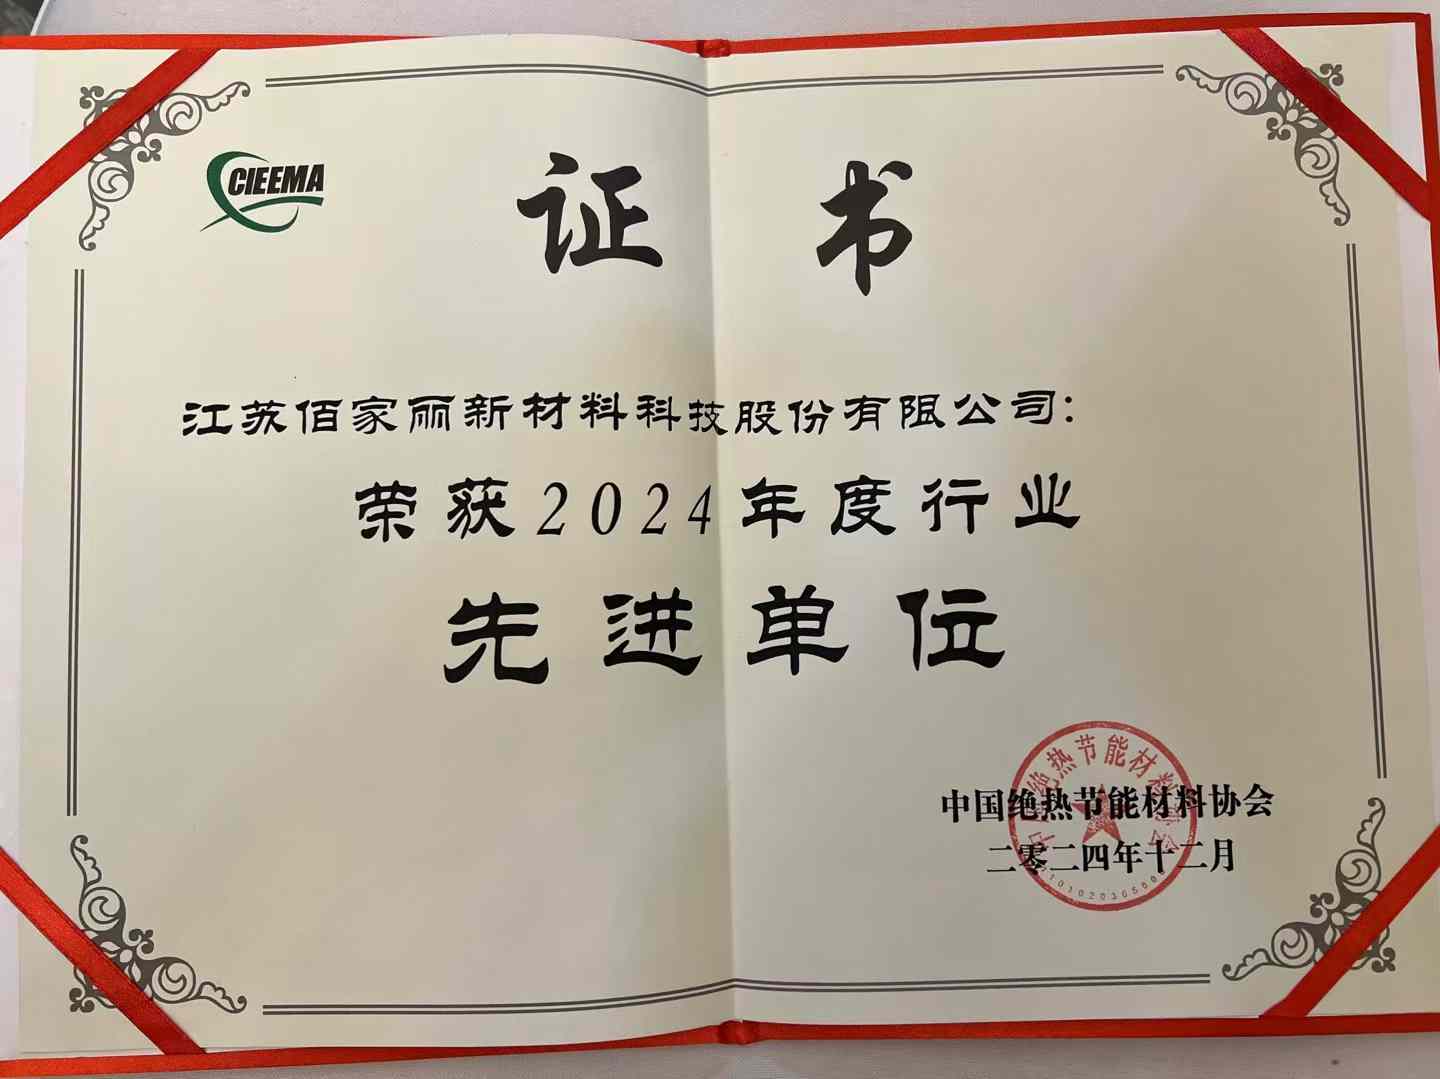 CIEEMA
证书
江苏佰家丽新材料科技股份有限公司：
荣获2024年度行业
先进单位
中国绝热节能材料协会
二零二四年十二月
中国绝热节能材料协会